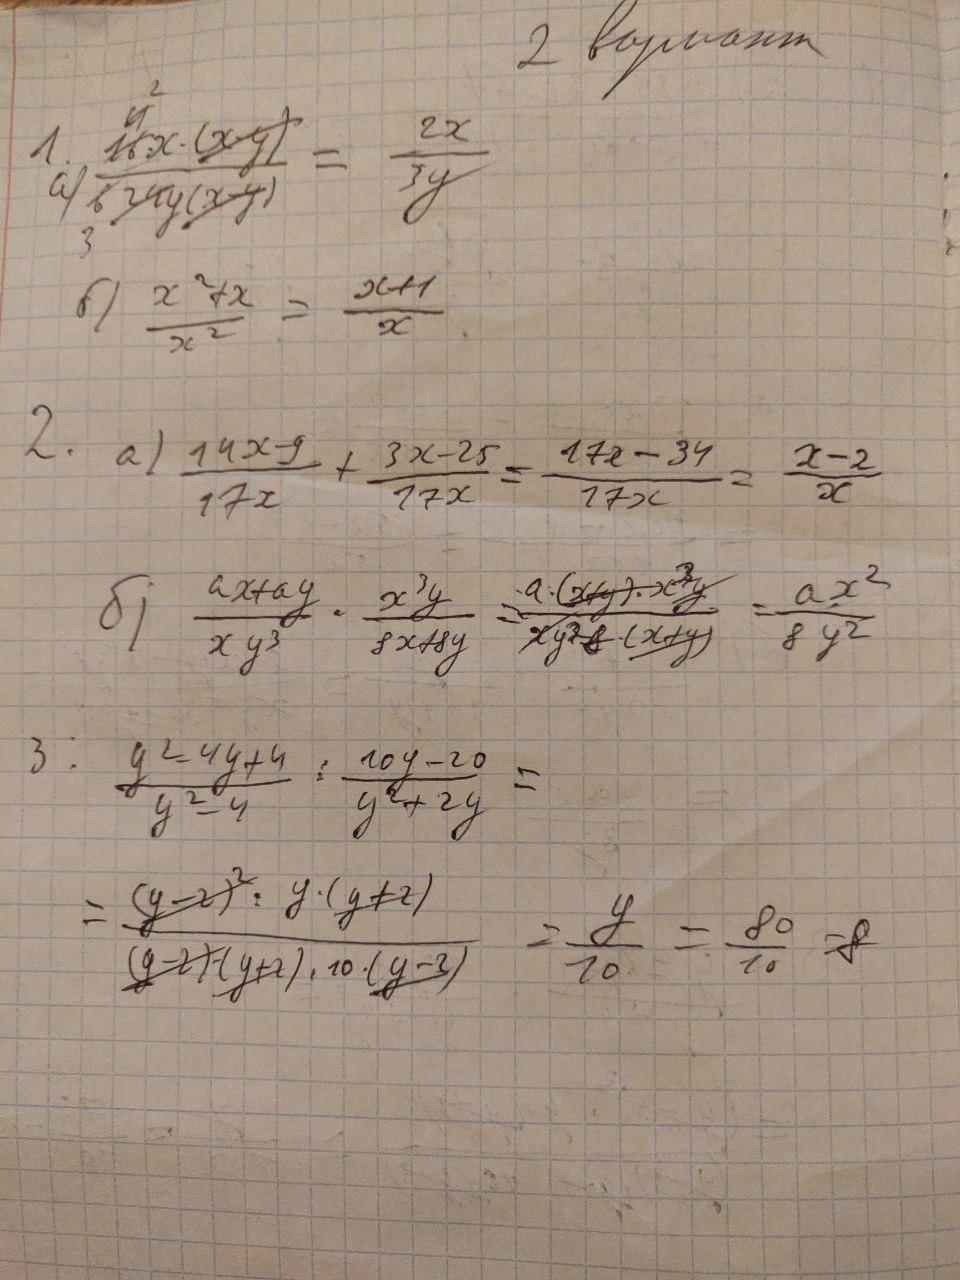 2 вариант
1. а) 16x·(x-y) / 24y(x-y) = 2x / 3y
4 2
6
3
б) x²+x / x² = x+1 / x
2. а) 14x-9 / 17x + 3x-25 / 17x = 17x-34 / 17x = x-2 / x
б) ax+ay / xy³ · x³y / 8x+8y = a·(x+y)·x³y / xy³·8·(x+y) = ax² / 8y²
3: y²-4y+4 / y²-4 : 10y-20 / y²+2y =
= (y-2)²· y·(y+2) / (y-2)·(y+2)·10·(y-2) = y / 10 = 80 / 10 = 8